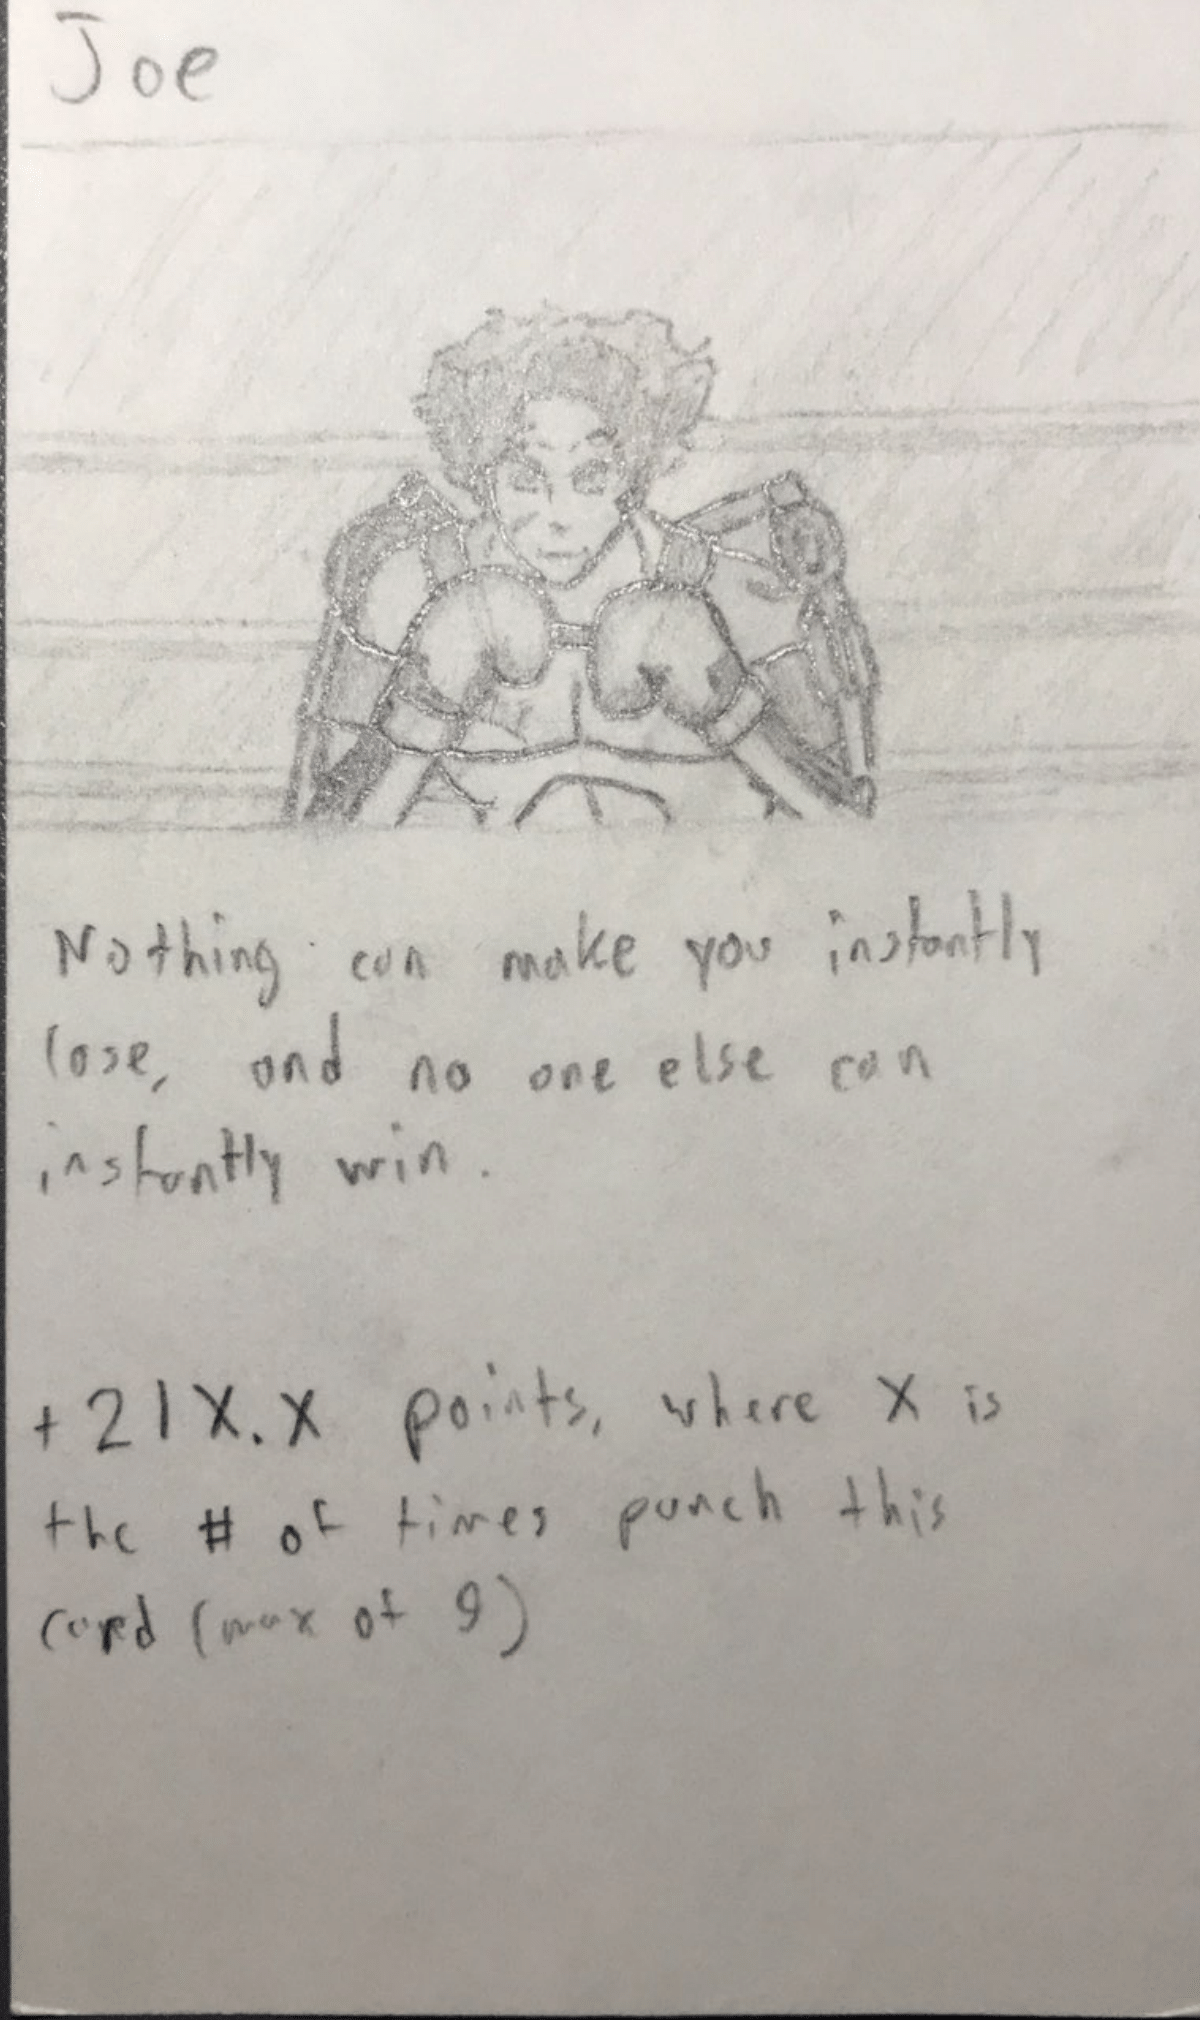 Joe
Nothing can make you instantly
lose, and no one else can
instantly win.
+21X.X points, where X is
the # of times punch this
card (max of 9)